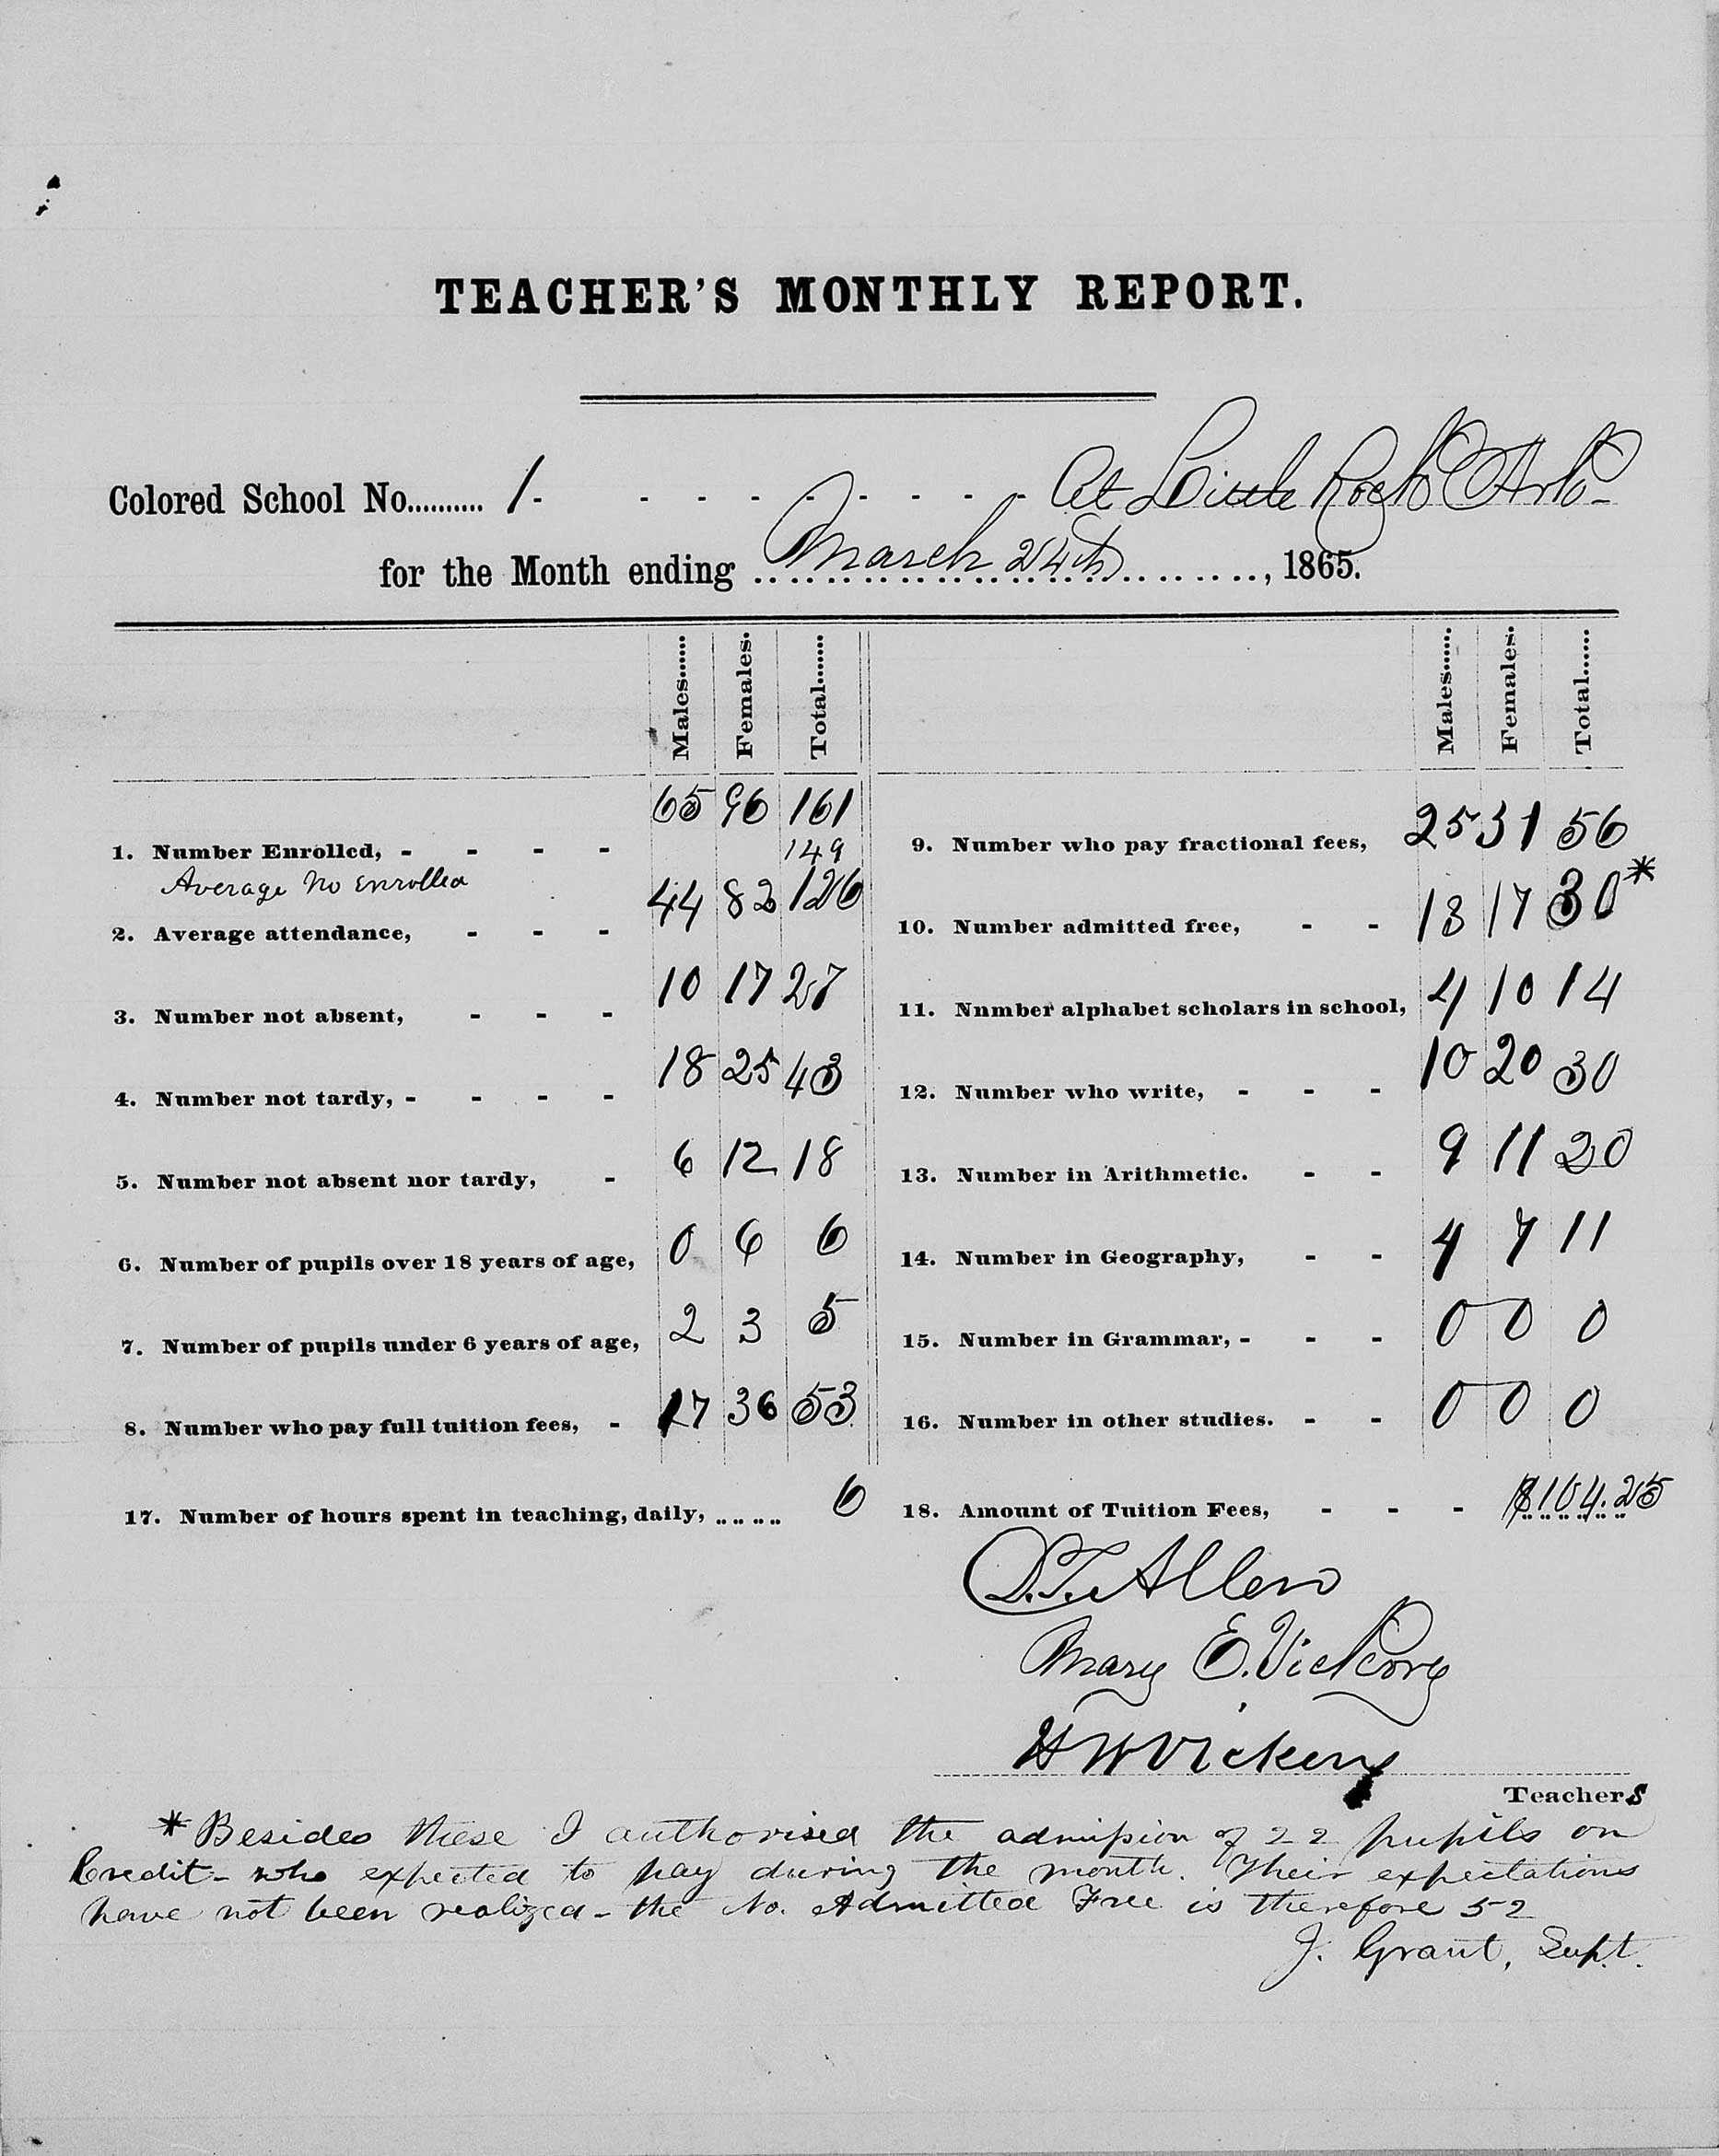 TEACHER'S MONTHLY REPORT.
Colored School No.......... 1. - - - - - - - - At Little Rock Ark-
for the Month ending March 24th, 1865.
Males...... Females. Total....... Males...... Females. Total......
1. Number Enrolled, - - - - 65 96 161
Average No Enrolled 149
2. Average attendance, - - - 44 82 126
3. Number not absent, - - - 10 17 27
4. Number not tardy, - - - - 18 25 43
5. Number not absent nor tardy, - 6 12 18
6. Number of pupils over 18 years of age, 0 6 6
7. Number of pupils under 6 years of age, 2 3 5
8. Number who pay full tuition fees, - 17 36 53
9. Number who pay fractional fees, 25 31 56
10. Number admitted free, - - 13 17 30*
11. Nnmber alphabet scholars in school, 4 10 14
12. Number who write, - - - 10 20 30
13. Number in Arithmetic. - - 9 11 20
14. Number in Geography, - - 4 7 11
15. Number in Grammar, - - - 0 0 0
16. Number in other studies. - - 0 0 0
17. Number of hours spent in teaching, daily, ........ 6
18. Amount of Tuition Fees, - - - $104.25
D.T. Allen
Mary E. Vickery
H W Vickery
Teachers
* Besides these I authorised the admission of 22 pupils on
Credit - who expected to pay during the month. Their expectations
have not been realized - the No. Admitted Free is therefore 52
J. Grant, Supt.